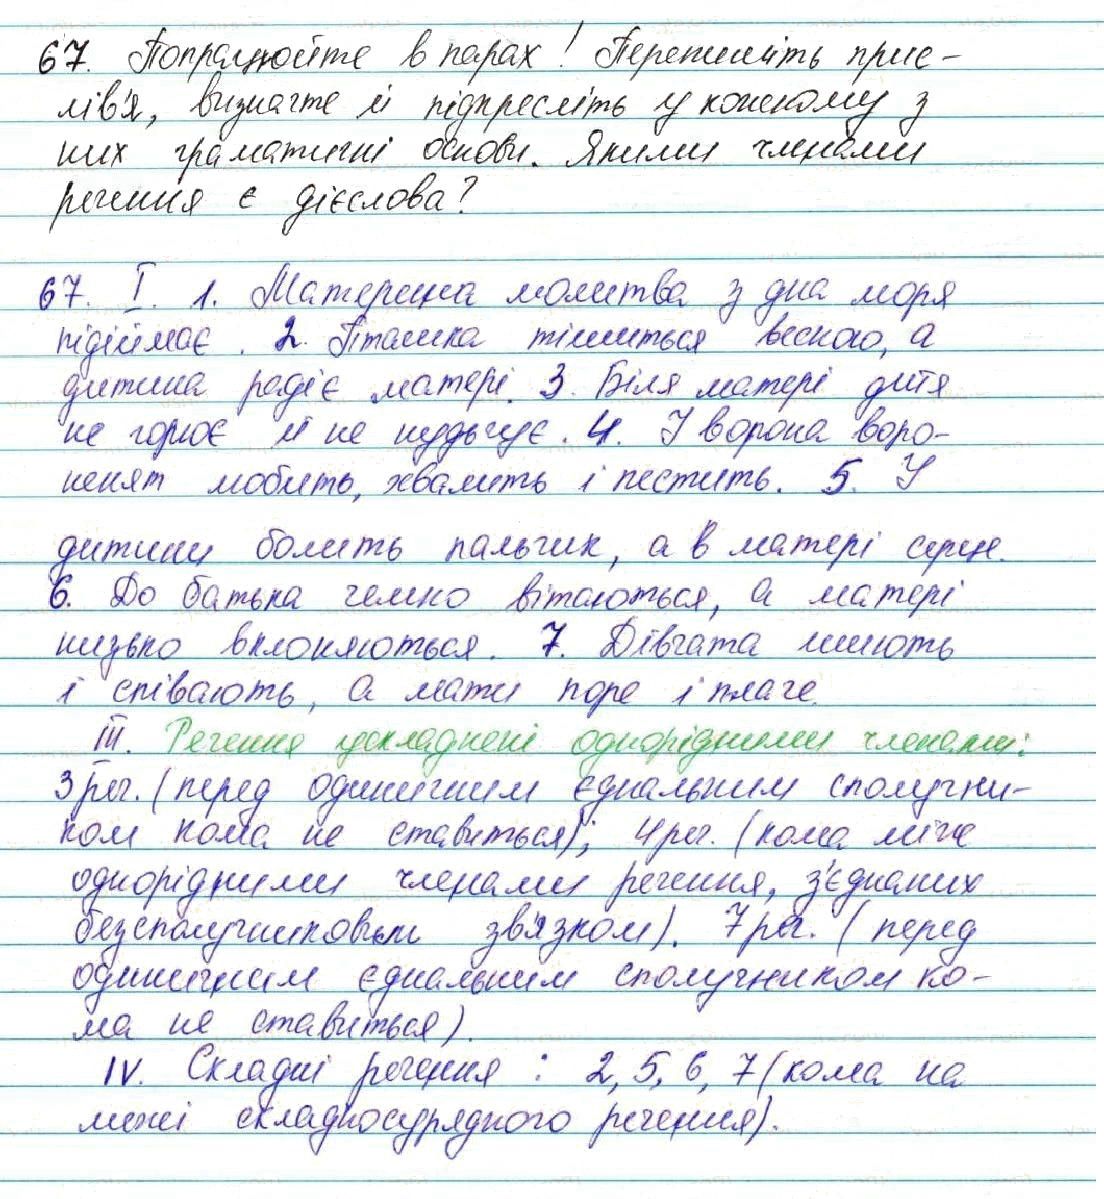 67. Попрацюйте в парах! Перепишіть прис-
лів'я, визначте й підкресліть у кожному з
них граматичні основи. Якими членами
речення є дієслова?
67. І. 1. Материна молитва з дна моря
підіймає. 2. Пташка тішиться весною, а
дитина радіє матері. 3. Біля матері дитя
не горює й не нудьгує. 4. У ворона воро-
ненят люблять, хвалить і пестить. 5. У
дитини болить пальчик, а в матері серце.
6. До батька чемно вітаються, а матері
низько вклоняються. 7. Дівчата шиють
і співають, а мати поре і плаче.
ІІІ. Речення ускладнені однорідними членами:
3 реч. (перед одиничним єднальним сполучни-
ком кома не ставиться); 4 реч. (кома між
однорідними членами речення, з'єднаних
безсполучниковим зв'язком). 7 реч. (перед
одиничним єднальним сполучником ко-
ма не ставиться).
IV. Складні речення: 2, 5, 6, 7 (кома на
межі складносурядного речення).